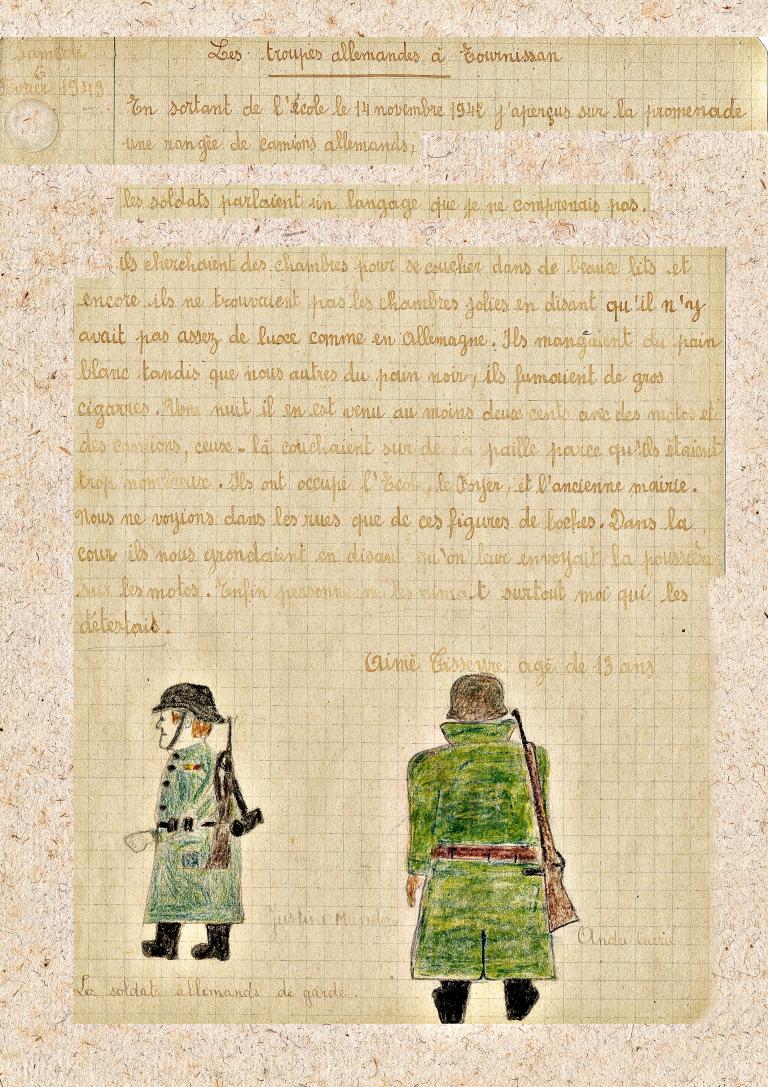 Samedi
6
Février 1943
Les troupes allemandes à Tournissan
En sortant de l'école le 14 novembre 1942 j'aperçus sur la promenade
une rangée de camions allemands,
les soldats parlaient un langage que je ne comprenais pas.
ils cherchaient des chambres pour se coucher dans de beaux lits et
encore ils ne trouvaient pas les chambres jolies en disant qu'il n'y
avait pas assez de luxe comme en Allemagne. Ils mangaient du pain
blanc tandis que nous autres du pain noir, ils fumaient de gros
cigarres. Une nuit il en est venu au moins deux cents avec des motos et
des camions, ceux-là couchaient sur de la paille parce qu'ils étaient
trop nombreux. Ils ont occupé l'École, le Foyer, et l'ancienne mairie.
Nous ne voyions dans les rues que de ces figures de boches. Dans la
cour ils nous grondaient en disant qu'on leur envoyait la poussière
sur les motos. Enfin personne ne les aimait surtout moi qui les
détestais.
Aimé Tisseyre agé de 13 ans
Justine
André
Les soldats allemands de garde.